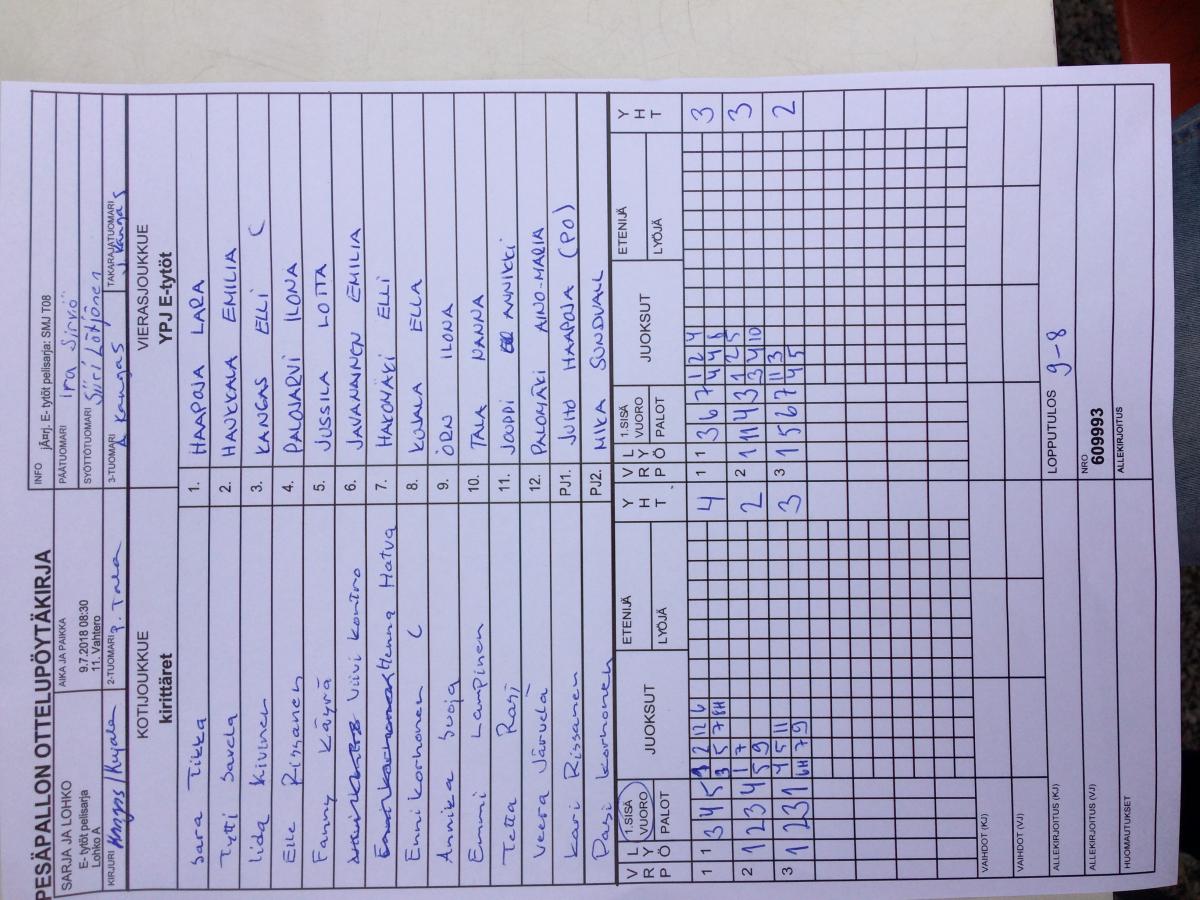 PESÄPALLON OTTELUPÖYTÄKIRJA
INFO jÃ¤rj. E- tytöt pelisarja: SMJ T08
SARJA JA LOHKO
E- tytöt pelisarja
Lohko A
AIKA JA PAIKKA
9.7.2018 08:30
11. Vahtero
PÄÄTUOMARI Ira Sirviö
SYÖTTÖTUOMARI Siiri Lötjönen
KIRJURI
2-TUOMARI
3-TUOMARI A Kangas
TAKARAJATUOMARI J Kangas
KOTIJOUKKUE
kirittäret
VIERASJOUKKUE
YPJ E-tytöt
Sara Tikka 1. HAAPOJA LARA
Tytti Savela 2. HAUKKALA EMILIA
Iida Kivinen 3. KANGAS ELLI C
Elle Rissanen 4. PALOJARVI ILONA
Fanny Käyrä 5. JUSSILA LOTTA
Viivi Kontro 6. JAVANAINEN EMILIA
Henna Hatva 7. HAKOMÄKI ELLI
Enni Korhonen C 8. KUJALA ELLA
Annika Suoja 9. ÖRN ILONA
Emmi Lampinen 10. TALA NANNA
Tetta 11. JOUPPI ANNIKKI
Veera Järvelä 12. PALOMÄKI AINO-MARIA
Kari Rissanen PJ1. JUHO HAAPOJA (PO)
Pasi Korhonen PJ2. MIKA SUNDVALL
V L
R Y
P Ö
1.SISÄ
VUORO
PALOT
JUOKSUT
ETENIJÄ
LYÖJÄ
Y
H
T
V L
R Y
P Ö
1.SISÄ
VUORO
PALOT
JUOKSUT
ETENIJÄ
LYÖJÄ
Y
H
T
1 1 3 4 5 4
1 1 3 6 7 1 2 4 3
3 5 7
4 4 8
2 1 2 3 4 1 7 2
2 11 4 3 1 2 5 3
5 9
3 4 10
3 1 2 3 1 4 5 11 3
3 1 5 6 7 11 3 2
7 9
4 5
VAIHDOT (KJ)
VAIHDOT (VJ)
ALLEKIRJOITUS (KJ)
LOPPUTULOS 9-8
ALLEKIRJOITUS (VJ)
NRO
609993
HUOMAUTUKSET
ALLEKIRJOITUS